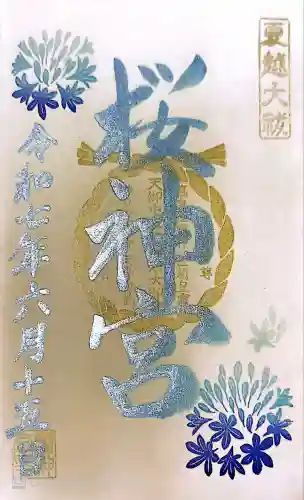 夏越大祓
桜神宮
令和七年六月十五日